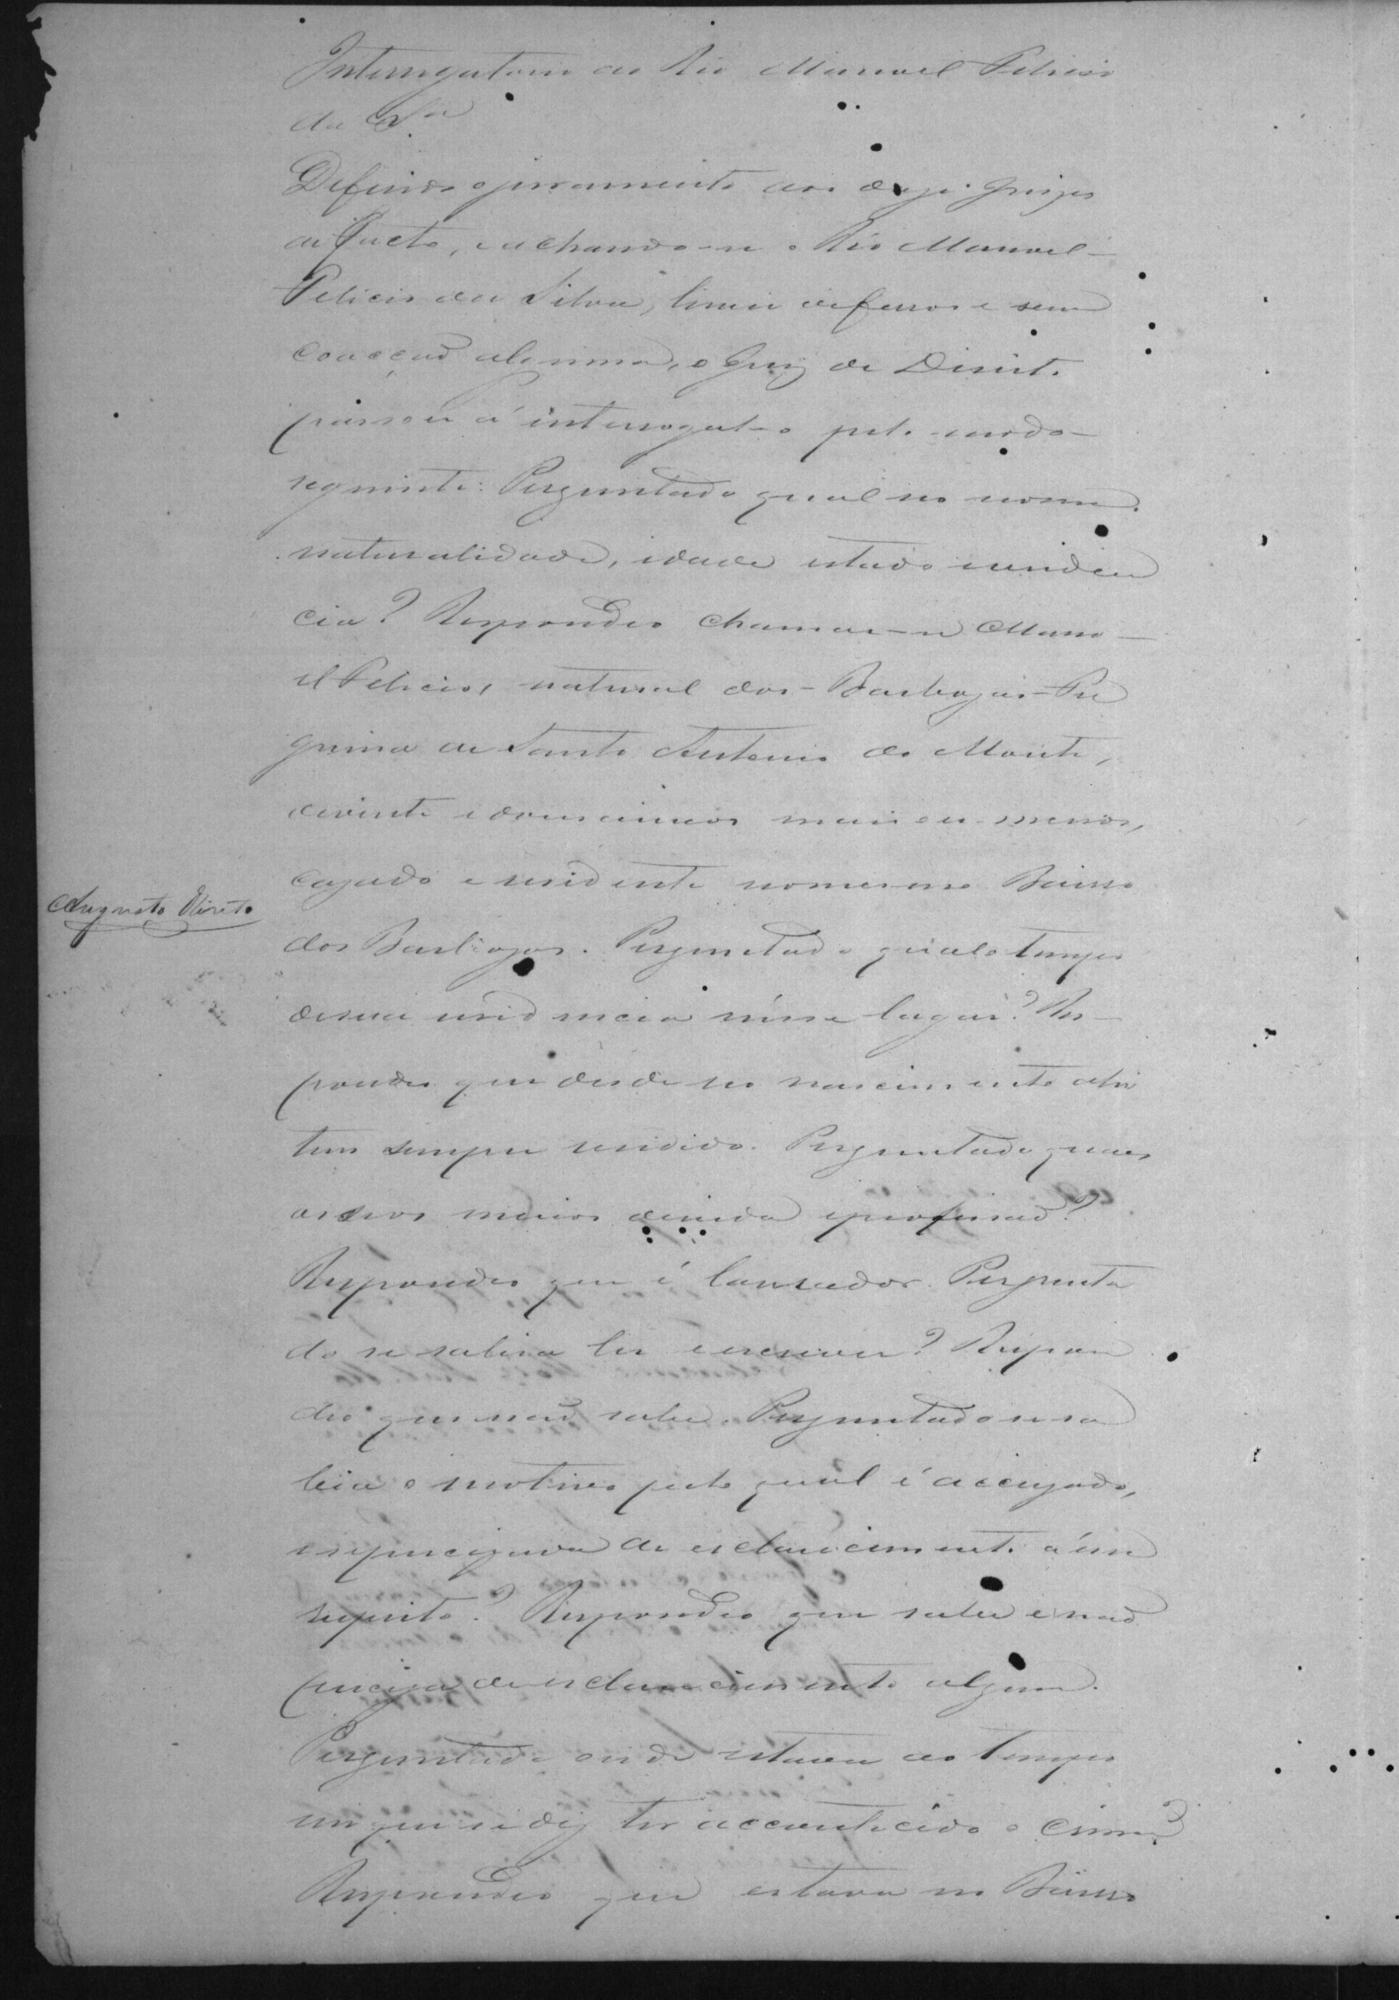 Interrogatorio ao Reo Manoel Felicio
da Sª
Deferido o juramento aos doze Juizes
de facto, e achando-se o Réo Manoel
Felicio da Silva, livre de ferros e sem
coacção alguma, o Juiz de Direito
passou á interrogal-o pelo modo
seguinte: Perguntado qual seo nome,
naturalidade, idade estado e residen
cia? Respondeo chamar-se Mano-
el Felicio, natural dos Barbozas Fre
guezia de Santo Antonio do Monte,
de vinte e dous annos mais ou menos,
cazado e residente no mesmo Bairro
dos Barbozas. Perguntado qual o tempo
de sua residencia nesse lugar? Res-
pondeo que desde seo nascimento ahi
tem sempre residido. Perguntado quaes
os seos meios de vida e profissaõ?
Respondeo que é lavrador. Pergunta
do se sabia ler e escrever? Respon
deo que naõ sabe. Perguntado se sa
bia o motivo pelo qual é accuzado,
e se precizava de esclarecimento á esse
respeito? Respondeo que sabe e naõ
preciza de esclarecimento algum.
Perguntado onde estava ao tempo
em que se diz ter accontecido o crime?
Respondeo que estava no Bairro
Augusto